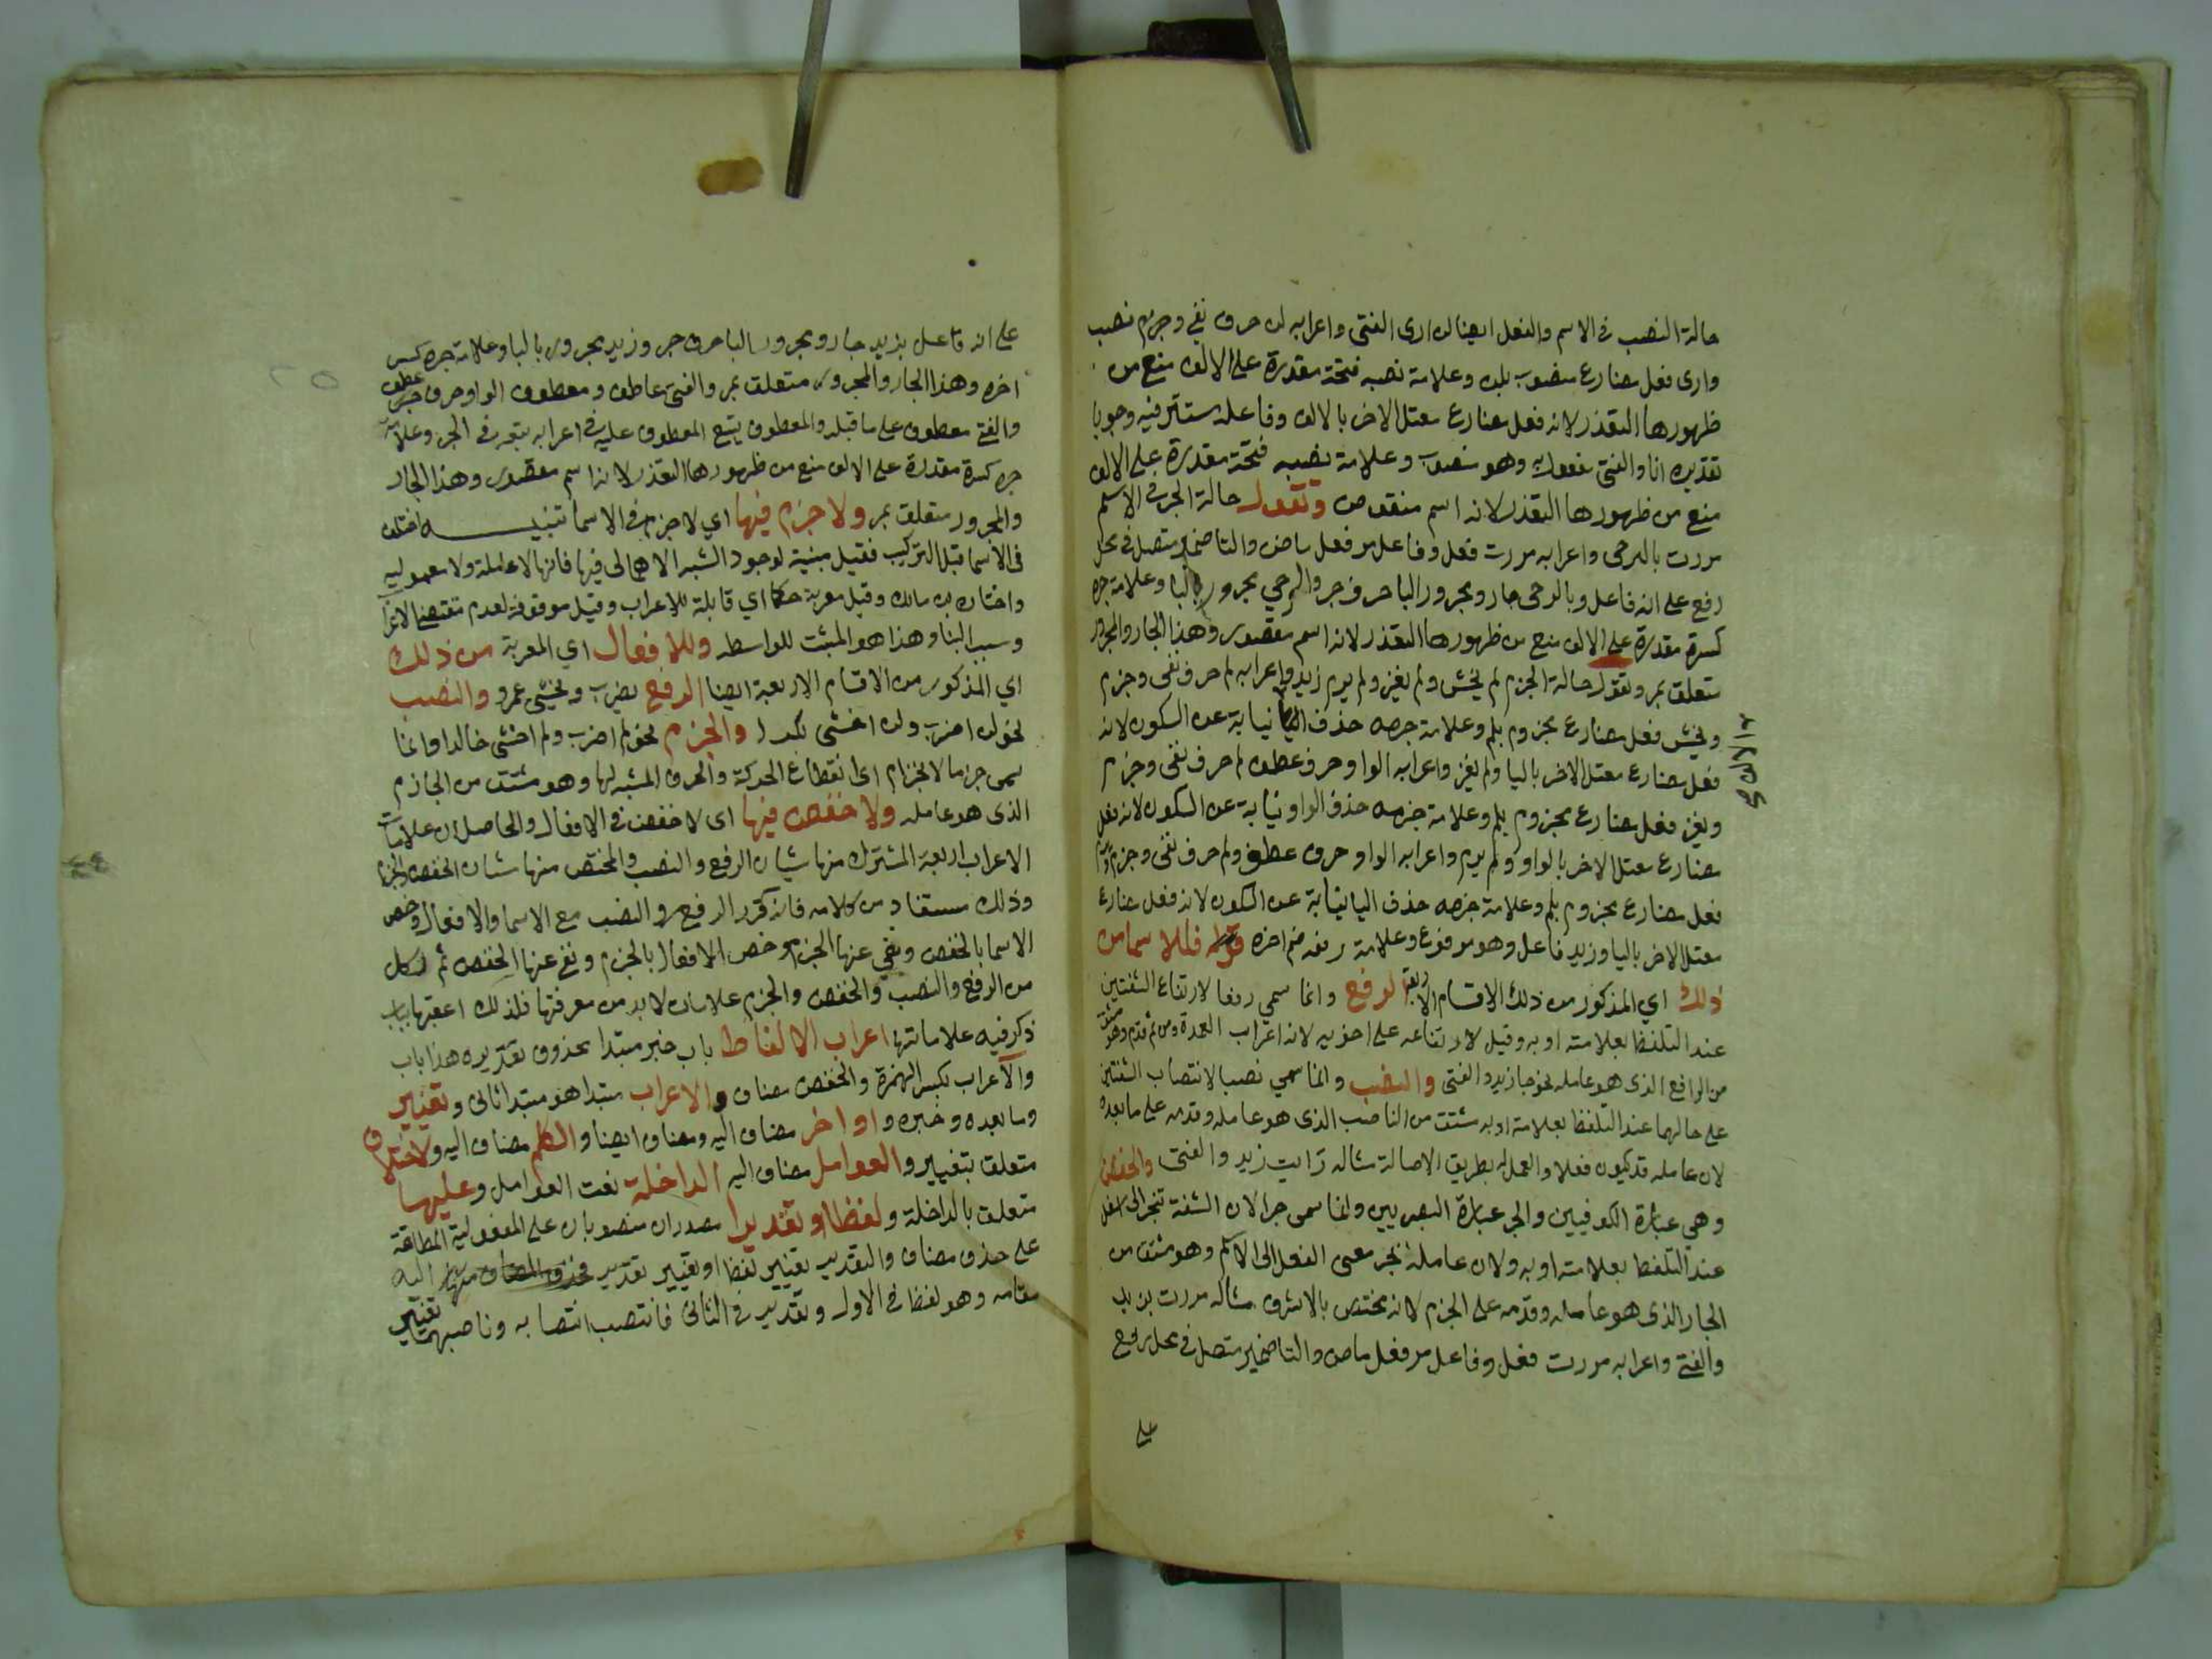 حالة النصب فى الاسم والفعل ايضا لن ارى الفتى واعرابه لن حرف نفي وجزم نصب
وارى فعل مضارع منصوب بلن وعلامة نصبه فتحة مقدرة على الالف منع من
ظهورها التعذر لانه فعل مضارع معتل الاخر بالالف وفاعله مستتر فيه وجوبا
تقديره انا والفتى مفعول به وهو منصوب وعلامة نصبه فتحة مقدرة على الالف
منع من ظهورها التعذر لانه اسم منقوص وتقول حالة الجر فى الاسم
مررت بالرحى واعرابه مررت فعل وفاعل مر فعل ماض والتا ضمير متصل فى محل
رفع على انه فاعل وبالرحى جار ومجرور البا حرف جر والرحي مجرور بالبا وعلامة جره
كسرة مقدرة على الالف منع من ظهورها التعذر لانه اسم مقصور وهذا الجار والمجرور
متعلق بمر وتقول حالة الجزم لم يخش ولم يغز ولم يرم زيد واعرابه لم حرف نفى وجزم
ويخش فعل مضارع مجزوم بلم وعلامة جزمه حذف نيابة عن السكون لانه
فعل مضارع معتل الاخر باليا ولم يغز واعرابه الواو حرف عطف لم حرف نفى وجزم
ويغز فعل مضارع مجزوم بلم وعلامة جزمه حذف الواو نيابة عن السكون لانه فعل
مضارع معتل الاخر بالواو ولم يرم واعرابه الواو حرف عطف ولم حرف نفى وجزم ويرم
فعل مضارع مجزوم بلم وعلامة جزمه حذف اليا نيابة عن السكون لانه فعل مضارع
معتل الاخر باليا وزيد فاعل وهو مرفوع وعلامة رفعه ضم اخره قوله فللاسما من
ذلك اي المذكور من ذلك الاقسام الاربعة الرفع وانما سمي رفعا لارتفاع الشفتين
عند التلفظ بعلامته او به وقيل لارتفاعه على اخويه لانه اعراب العمدة ومن ثم قدم وهو مشتق
من الرافع الذى هو عامله نحو جا زيد والفتى والنصب وانما سمي نصبا لانتصاب الشفتين
على حالهما عند التلفظ بعلامته او به مشتق من الناصب الذى هو عامله وقدمه على ما بعده
لان عامله قد يكون فعلا والعمل له بطريق الاصالة مثاله رايت زيد والفتى والخفض
وهي عبارة الكوفيين والجر عبارة البصريين وانما سمى جرا لان الشفة تنجر الى اسفل
عند التلفظ بعلامته او به ولان عامله يجر معنى الفعل الى الاسم وهو مشتق من
الجار الذى هو عامله وقدمه على الجزم لانه مختص بالاشرف مثاله مررت بزيد
والفتى واعرابه مررت فعل وفاعل مر فعل ماض والتا ضمير متصل فى محل رفع
على
على انه فاعل بزيد جار ومجرور البا حرف جر وزيد مجرور بالبا وعلامة جره كسر
اخره وهذا الجار والمجرور متعلق بمر والفتى عاطف ومعطوف الواو حرف عطف
والفتى معطوف على ما قبله والمعطوف يتبع المعطوف عليه فى اعرابه تبعه فى الجر وعلامة
جره كسرة مقدرة على الالف منع من ظهورها التعذر لانه اسم مقصور وهذا الجار
والمجرور متعلق بمر ولا جزم فيها اي لا جزم فى الاسما تنبيه اختلف
فى الاسما قبل التركيب فقيل مبنية لوجود الشبه الاهمالى فيها فانها لا عاملة ولا معمولة
واختاره ابن مالك وقيل معربة حكما اي قابلة للاعراب وقيل موقوفة لعدم مقتضى الاعراب
وسبب البنا وهذا هو المثبت للواسطه وللافعال اي المعربة من ذلك
اي المذكور من الاقسام الاربعة ايضا الرفع يضرب ويخشى عمرو والنصب
نحو لن اضرب ولن اخشى والجزم نحو لم اضرب ولم اخشى خالدا وانما
سمى جزما لانجزام اى انقطاع الحركة والحرف المشبه لها وهو مشتق من الجازم
الذى هو عامله ولا خفض فيها اى لا خفض فى الافعال والحاصل ان علامات
الاعراب اربعة المشترك منها شيان الرفع والنصب والمختص منها شيان الخفض والجزم
وذلك مستفاد من كلامه فانه كرر الرفع والنصب مع الاسما والافعال وخص
الاسما بالخفض ونفي عنها الجزم وخص الافعال بالجزم ونفي عنها الخفض ثم لكل
من الرفع والنصب والخفض والجزم علامات لا بد من معرفتها فلذلك اعقبها بباب
ذكر فيه علاماتها اعراب الالفاظ باب خبر مبتدا محذوف تقديره هذا باب
والاعراب بكسر الهمزة والخفض مضاف والاعراب مبتدا هو مبتدا ثانى وتغيير
وما بعده وخبره واواخر مضاف اليه ومضاف ايضا والكلم مضاف اليه ولاختلاف
متعلق بتغيير والعوامل مضاف اليه الداخلة نعت العوامل وعليها
متعلق بالداخلة ولفظا او تقديرا مصدران منصوبان على المفعولية المطلقة
على حذف مضاف والتقدير تغيير لفظ او تغيير تقدير اليه
مقامه وهو لفظ فى الاول وتقدير فى الثانى فانتصب انتصابه وناصبهما تغيير